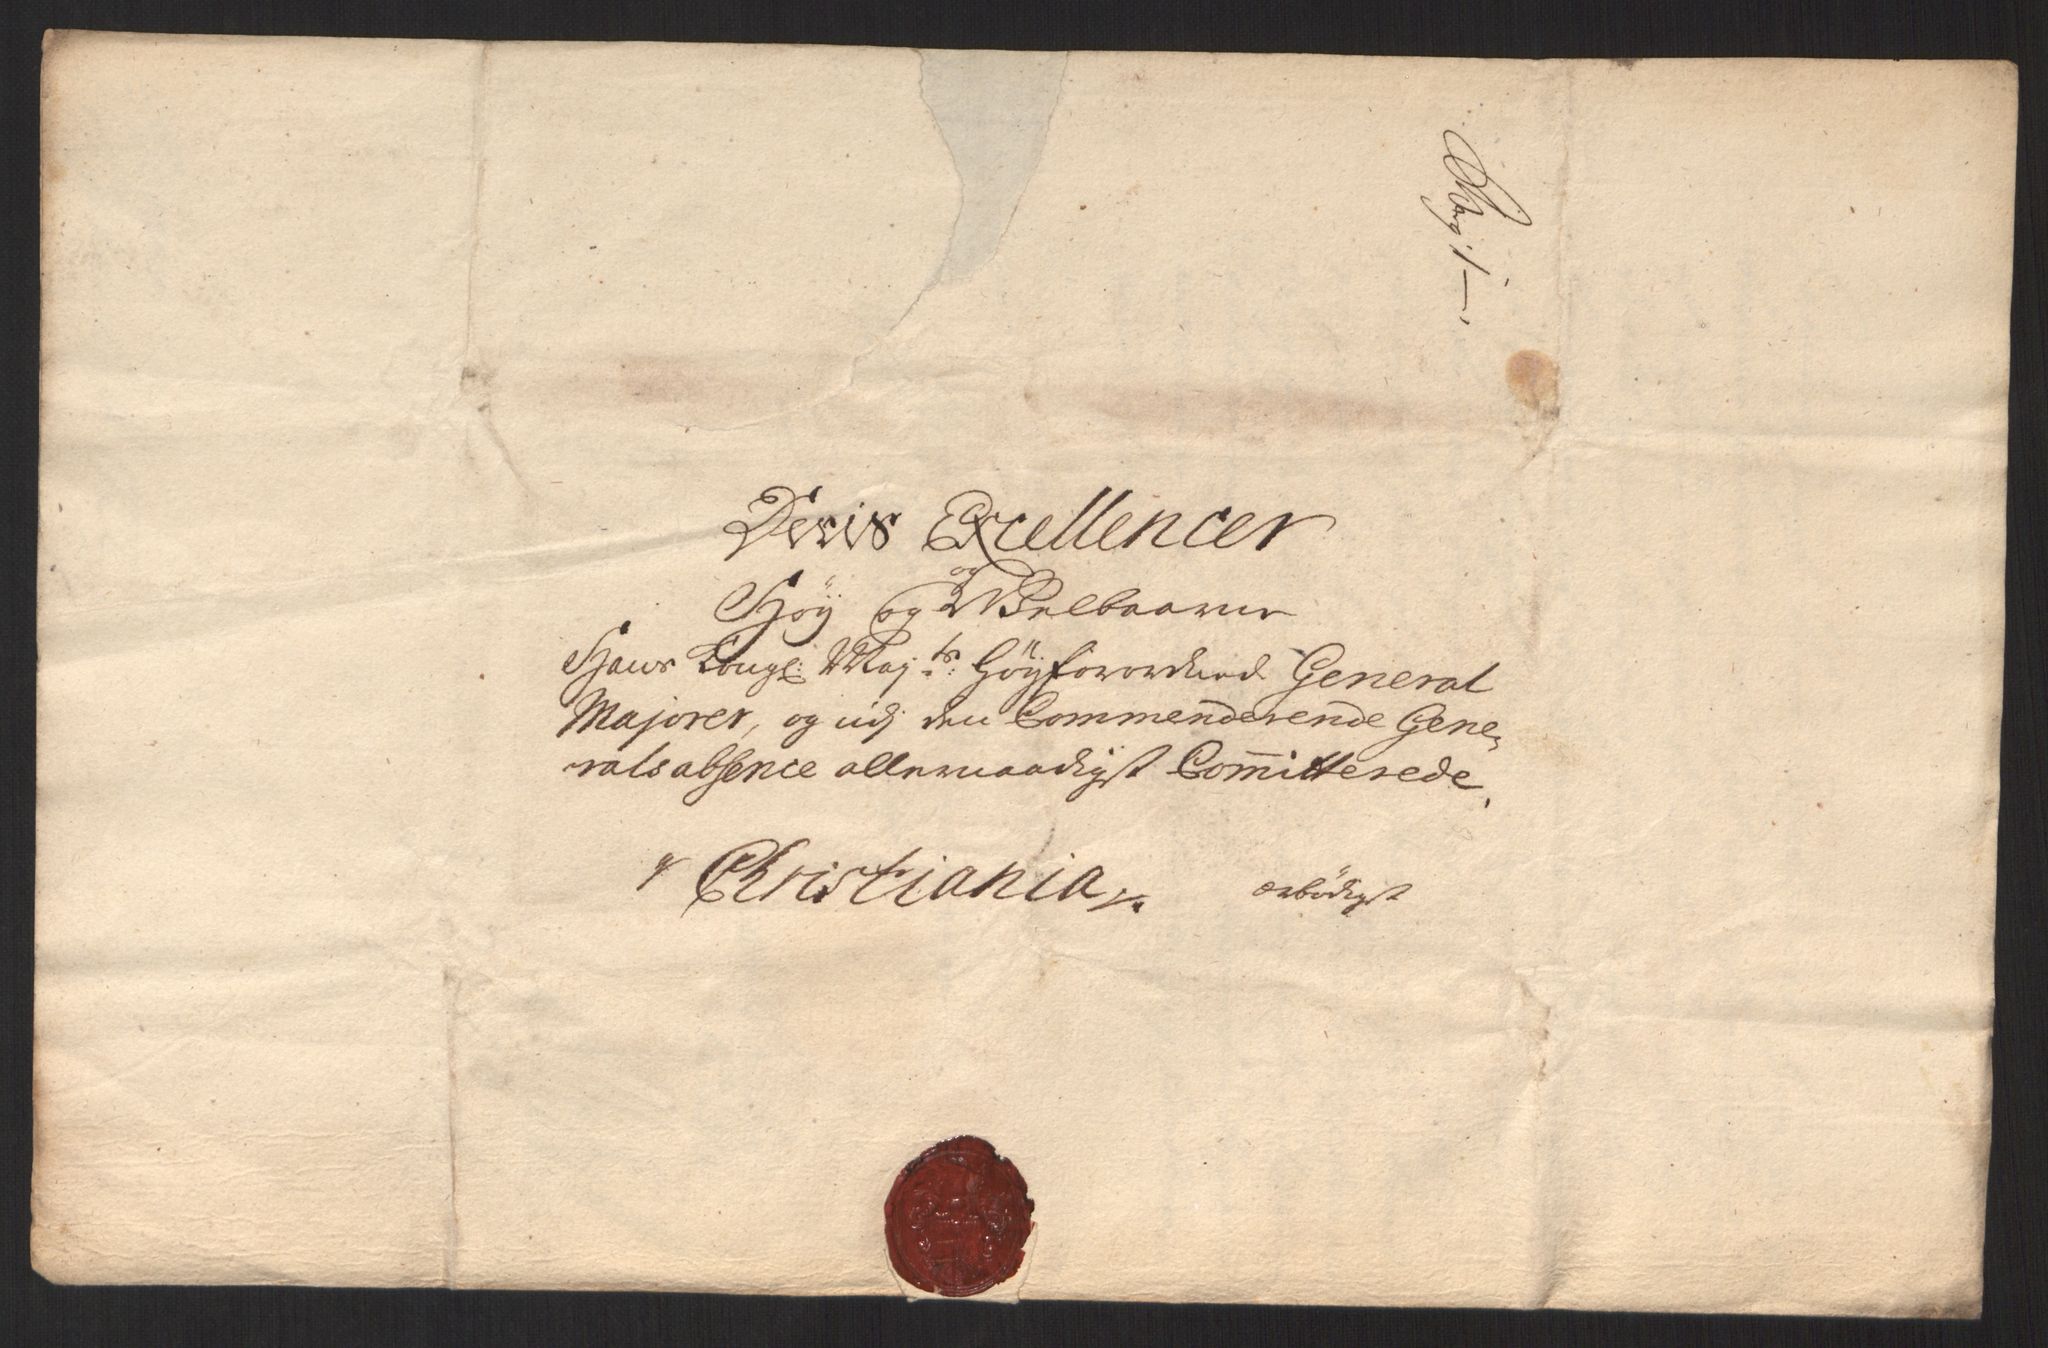 Deris Excellencer
Høÿ og og Welbaarne
Hans Kongl: Maj:ts: Høÿforordnede General
Majorer, og udj den Commenderende Gene,
ralsabsence allernaadigst Committerede,
Christiania
ærbödigst